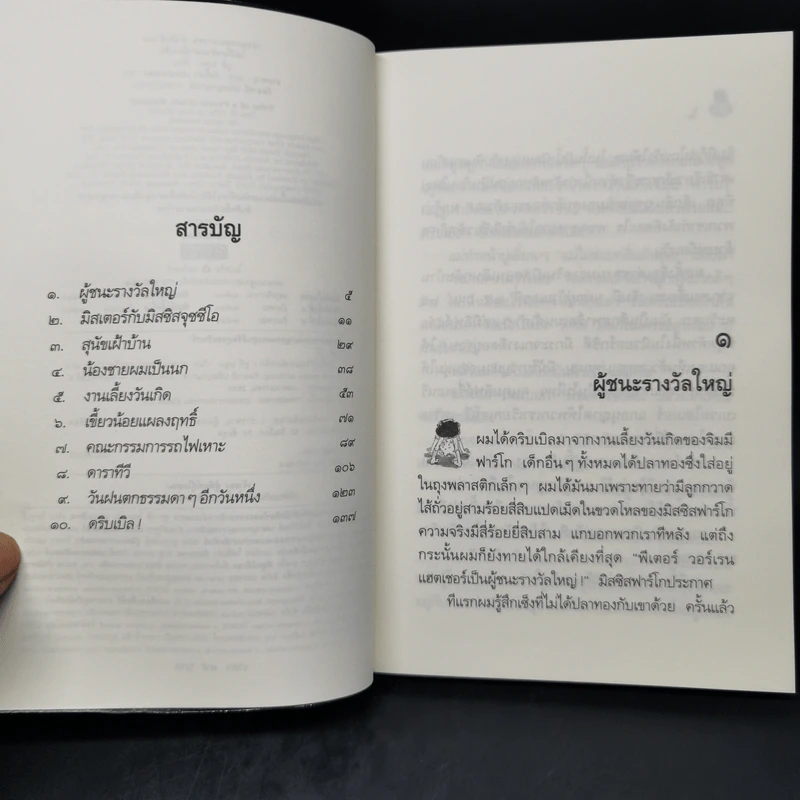 สารบัญ
๑. ผู้ชนะรางวัลใหญ่ ๕
๒. มิสเตอร์กับมิสซิสจุชชีโอ ๑๑
๓. สุนัขเฝ้าบ้าน ๒๙
๔. น้องชายผมเป็นนก ๓๘
๕. งานเลี้ยงวันเกิด ๕๓
๖. เขี้ยวน้อยแผลงฤทธิ์ ๗๑
๗. คณะกรรมการรถไฟเหาะ ๘๙
๘. ดาราทีวี ๑๐๖
๙. วันฝนตกธรรมดาๆ อีกวันหนึ่ง ๑๒๓
๑๐. ดริบเบิล! ๑๓๗
๑
ผู้ชนะรางวัลใหญ่
ผมได้ดริบเบิลมาจากงานเลี้ยงวันเกิดของจิมมี
ฟาร์โก เด็กอื่นๆ ทั้งหมดได้ปลาทองซึ่งใส่อยู่
ในถุงพลาสติกเล็กๆ ผมได้มันมาเพราะทายว่ามีลูกกวาด
ไส้ถั่วอยู่สามร้อยสี่สิบแปดเม็ดในขวดโหลของมิสซิสฟาร์โก
ความจริงมีสี่ร้อยยี่สิบสาม แกบอกพวกเราทีหลัง แต่ถึง
กระนั้นผมก็ยังทายได้ใกล้เคียงที่สุด “พีเตอร์ วอร์เรน
แฮตเชอร์เป็นผู้ชนะรางวัลใหญ่!” มิสซิสฟาร์โกประกาศ
ทีแรกผมรู้สึกเซ็งที่ไม่ได้ปลาทองกับเขาด้วย ครั้นแล้ว